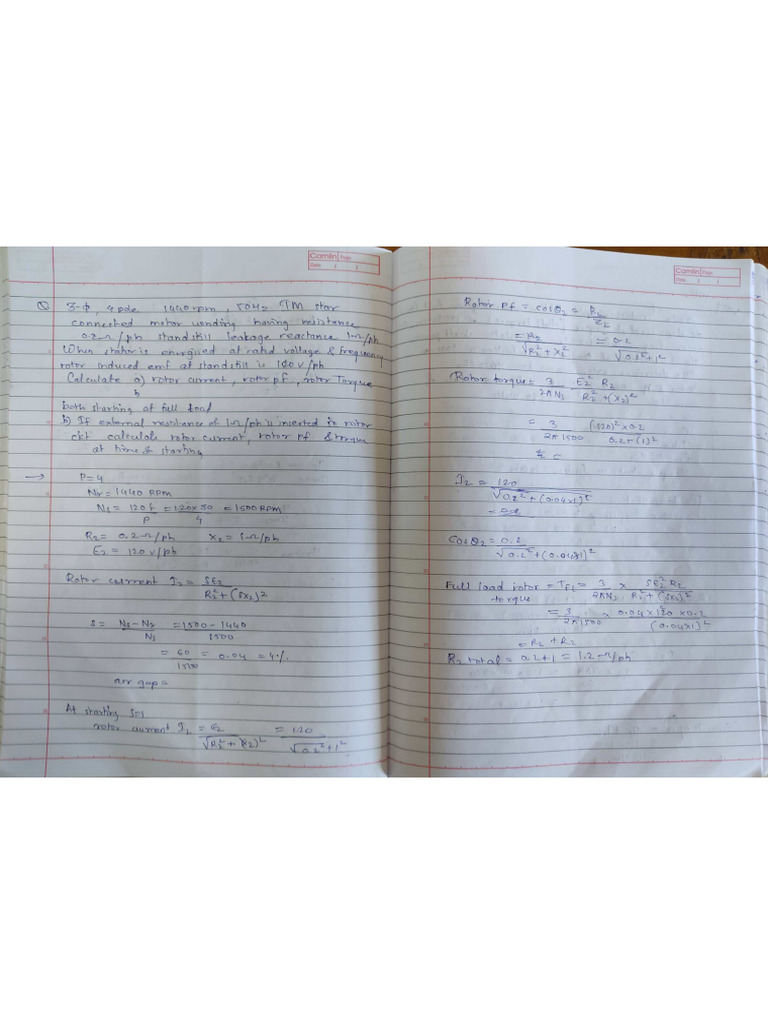 Camlin Page
Date / /
Q 3-φ, 4 pole 1440 rpm, 50Hz IM star
connected motor winding having resistance
0.2Ω/ph standstill leakage reactance 1Ω/ph
When stator is energised at rated voltage & frequency
rotor induced emf at standstill is 120 V/ph
Calculate a) rotor current, rotor pf, rotor Torque
both starting at full load
b) If external resistance of 1Ω/ph is inserted in rotor
ckt calculate rotor current, rotor pf & torque
at time & starting
→ P=4
Nr = 1440 RPM
Ns = 120f/P = 120×50/4 = 1500 RPM
R2 = 0.2Ω/ph X2 = 1Ω/ph
E2 = 120 V/ph
Rotor current I2 = SE2/R2²+(SX2)2
S = Ns-Nr/Ns = 1500-1440/1500
= 60/1500 = 0.04 = 4%
air gap =
At starting S=1
rotor current I2 = E2/√R2²+(X2)² = 120/√0.2²+1²
Camlin Page
Date / /
Rotor Pf = cosθ2 = R2/Z2
= R2/√R2²+X2² = 0.2/√0.2²+1²
Rotor torque = 3/2πNs E2² R2/R2²+(X2)²
= 3/2π1500 (120)²×0.2/0.2+(1)²
I2 = 120/√0.2²+(0.04×1)²
cosθ2 = 0.2/√0.2²+(0.04×1)²
Full load rotor = TFL = 3/2πNs × SE2² R2/R2²+(SX2)²
torque
= 3/2π1500 × 0.04×120×0.2/(0.04×1)²
= R2 + R2
R2 total = 0.2+1 = 1.2Ω/ph